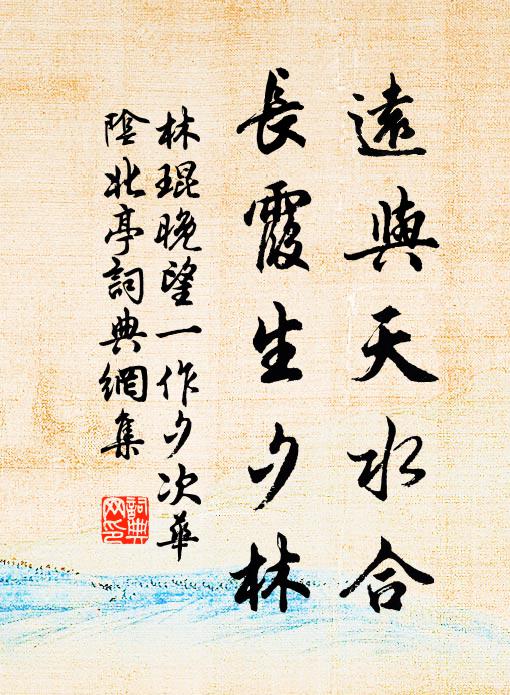 遠與天水合
長霞生夕林
林琨晚望一作夕次華
陰北亭詞典網集
詞典
网印